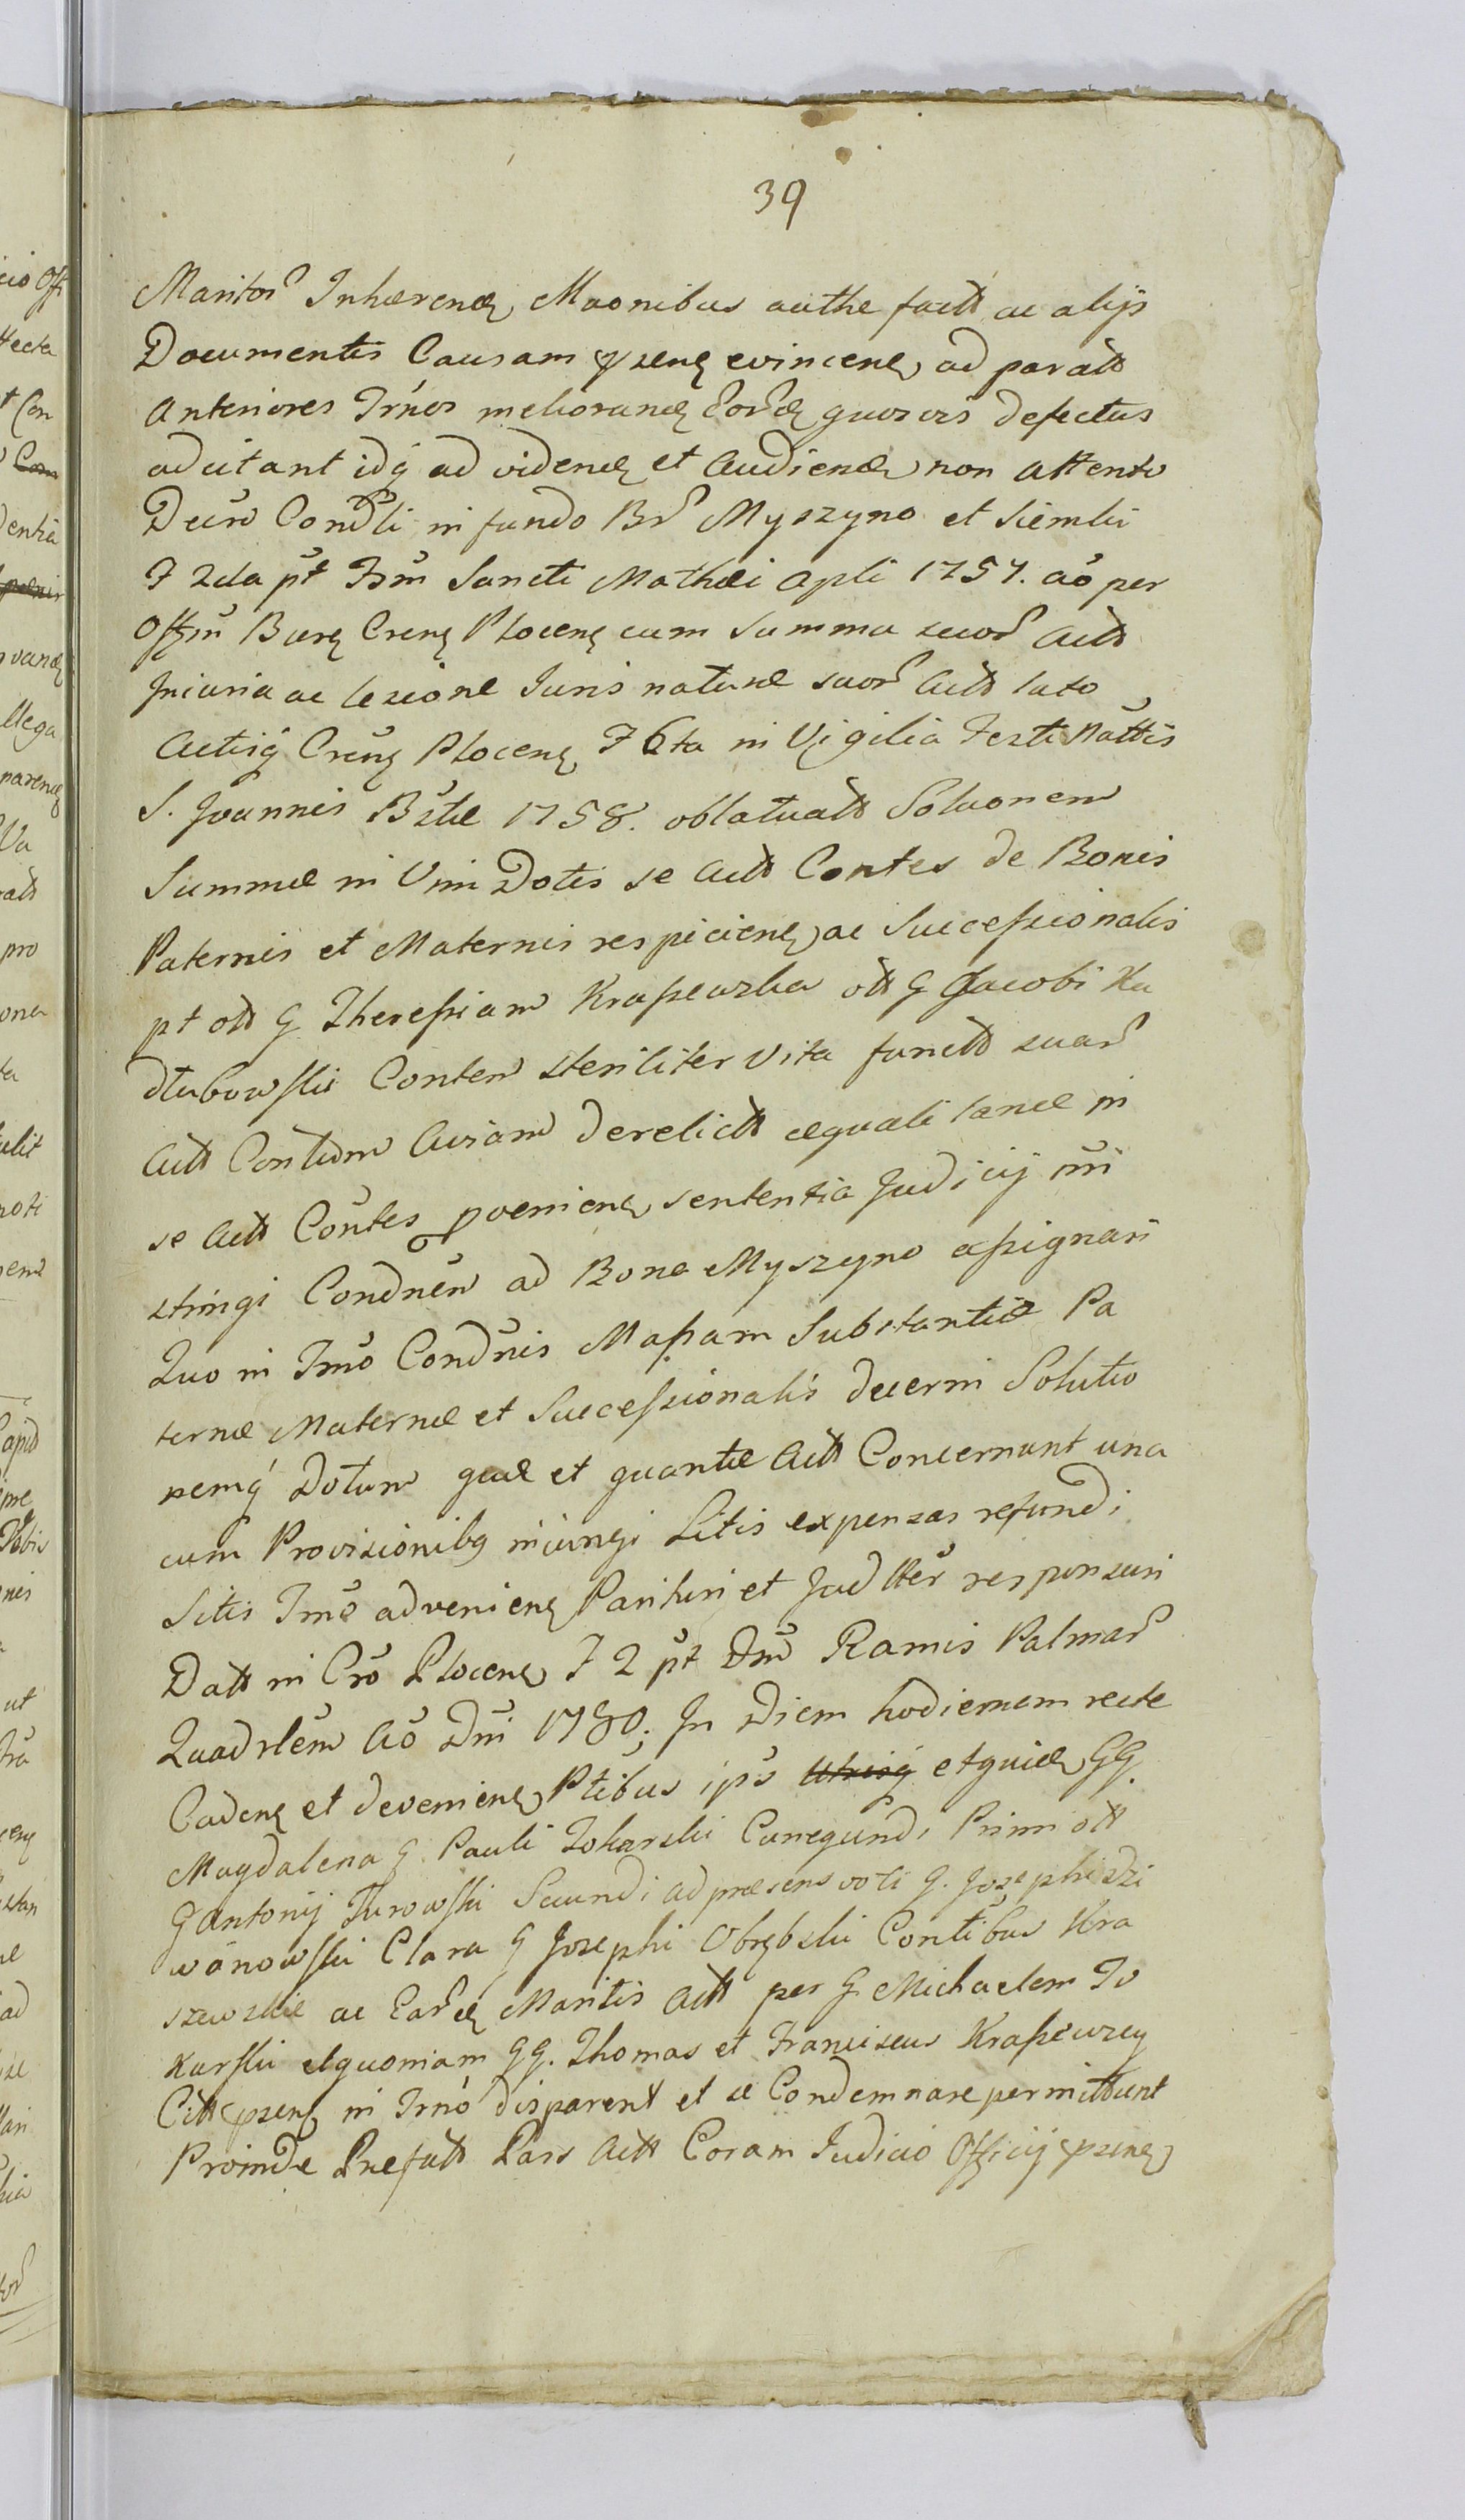 39
Maritorꝰ Inhærenȩ Muonibus authe factt ac alijs
Documentis Causam pꝛsenȩ evincenȩ ad paratt
Anteriores Trnos meliorandȩ Eorȩ quosvis defectus
adcitant idq̃ ad videndȩ et Audiendȩ non attento
Decro Condli in fundo Br̃ Myszyno et Siemki
F 2da pt Fsm Sancti Mathæi Apli 1757. aõ per
Offm Burȩ Crenȩ Plocenȩ cum Summa suor Actt
Iniuria ac lesione Juris naturæ suor Actt lato
Actisq̃ Crenȩ Plocenȩ F 6ta in Vigilia Festi Nattis
S. Joannis Bstæ 1758. oblatuatt Soluonem
Summæ in Vim Dotis se Actt Contes de Bonis
Paternis et Maternis respicienȩ ac Successionalis
pt ott G Theressiam Kraszewska ott G Jacobi Ka
dłubowski Contem steriliter vita functt suar
Actt Contium Aviam derelictt æquali lance in
se Actt Contes pvenienȩ sententia Judicij nri
stringi Condnem ad Bona Myszyno assignari
Quo in Tmo Condnis Massam Substantiæ Pa
ternæ Maternæ et Successionalis decerni Solutio
nemq̃ Dotum quæ et quantæ Actt Concernunt una
cum Provisionibq iniungi Litis expensas refundi
Sitis Tmo advenienȩ Parituri et Jud ltter responsuri
Datt in Cro Plocenȩ F 2 pt Dm Ramis Palmar
Quadrlem Ao Dni 1780; In Diem hodiernam recte
Cadenȩ et devenienȩ Ptibus ips utrisq̃ etquidȩ GG.
Magdalena G Pauli Tokarski Cunegundi Primi ott
G Antonij Turowski Secundi ad præsens voti G. Josephi Dzi
wanowski Clara G Josephi Obrębski Contibus Kra
szewskie ac Earȩ Maritis Actt per G Michaelem To
karski etquoniam GG. Thomas et Franciscus Kraszewscy
Citt pꝛsenȩ in Trno disparent et se Condemnare permittunt
Proinde Prefatt Pars Actt Coram Judicio Officij pꝛsenȩ